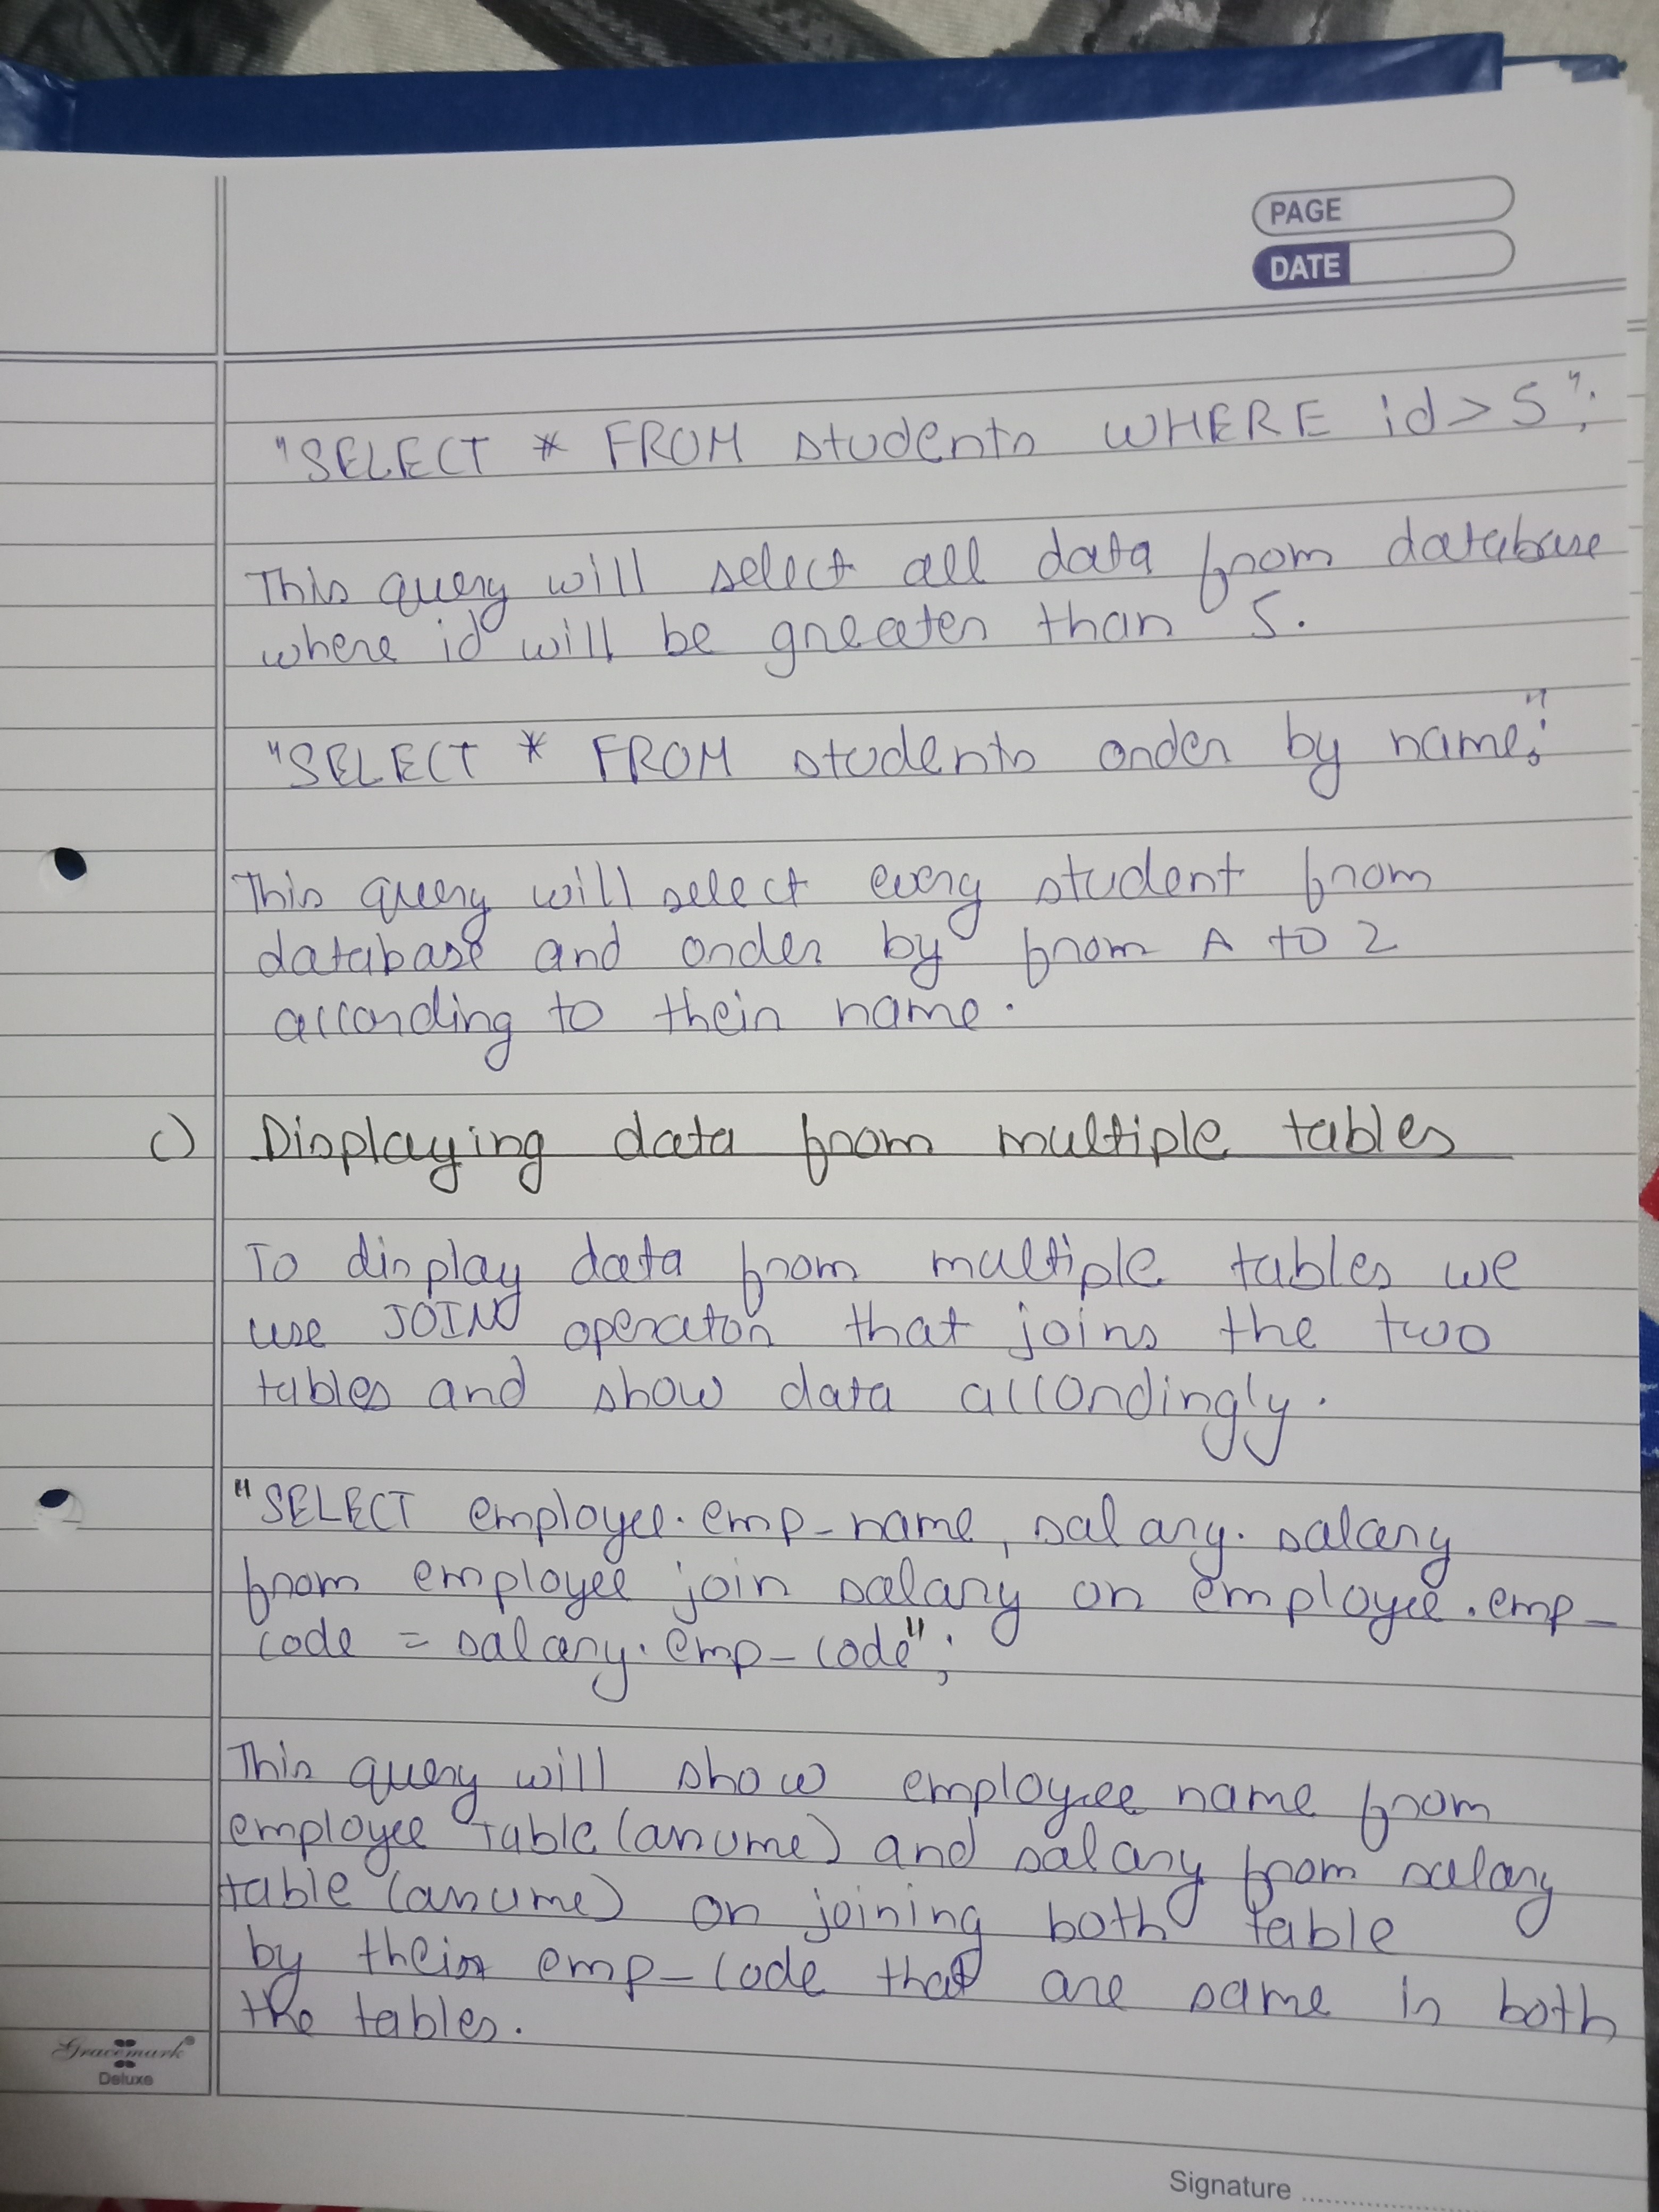 PAGE
DATE
"SELECT * FROM students WHERE id > 5";
This query will select all data from database
where id will be greater than 5.
"SELECT * FROM students order by name";
This query will select every student from
database and order by from A to Z
according to their name.
c) Displaying data from multiple tables
To display data from multiple tables we
use JOIN operator that joins the two
tables and show data accordingly.
"SELECT employee.emp-name, salary.salary
from employee join salary on employee.emp-
code = salary.emp-code";
This query will show employee name from
employee table (assume) and salary from salary
table (assume) on joining both table
by their emp-code that are same in both
the tables.
Gracemark
Deluxe
Signature ..............